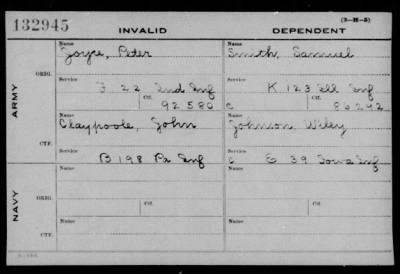 132945
(3-H-5)
INVALID DEPENDENT
Name Name
Joyce, Peter Smith, Samuel
ORIG.
Service Service
22 Ind Inf K 123 Ill Inf
Ctf. Ctf.
92580 c 86292
ARMY
Name Name
Claypoole, John Johnson Wiley
CTF.
Service Service
B 198 Pa Inf c G 39 Iowa Inf
Name Name
ORIG.
Service Ctf. Service Ctf.
NAVY
Name Name
CTF.
Service Service